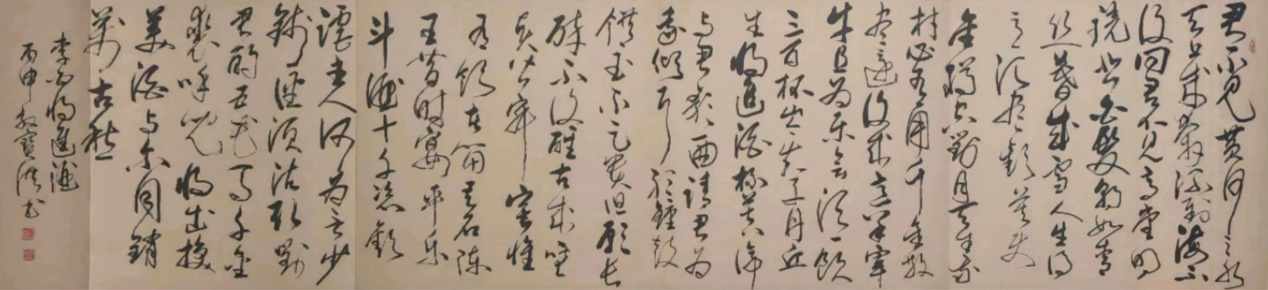 君不見黃河之水
天上來奔流到海不
復回君不見高堂明
鏡悲白髮朝如青
絲暮成雪人生得
意須盡歡莫使
金樽空對月天生我
材必有用千金散
盡還復來烹羊宰
牛且為樂會須一飲
三百杯岑夫子丹丘
生將進酒杯莫停
與君歌一曲請君為
我傾耳聽鐘鼓
饌玉不足貴但願長
醉不復醒古來聖
賢皆寂寞惟
有飲者留其名陳
王昔時宴平樂
斗酒十千恣歡
謔主人何為言少
錢徑須沽取對
君酌五花馬千金
裘呼兒將出換
美酒與爾同銷
萬古愁
李白將進酒
丙申書